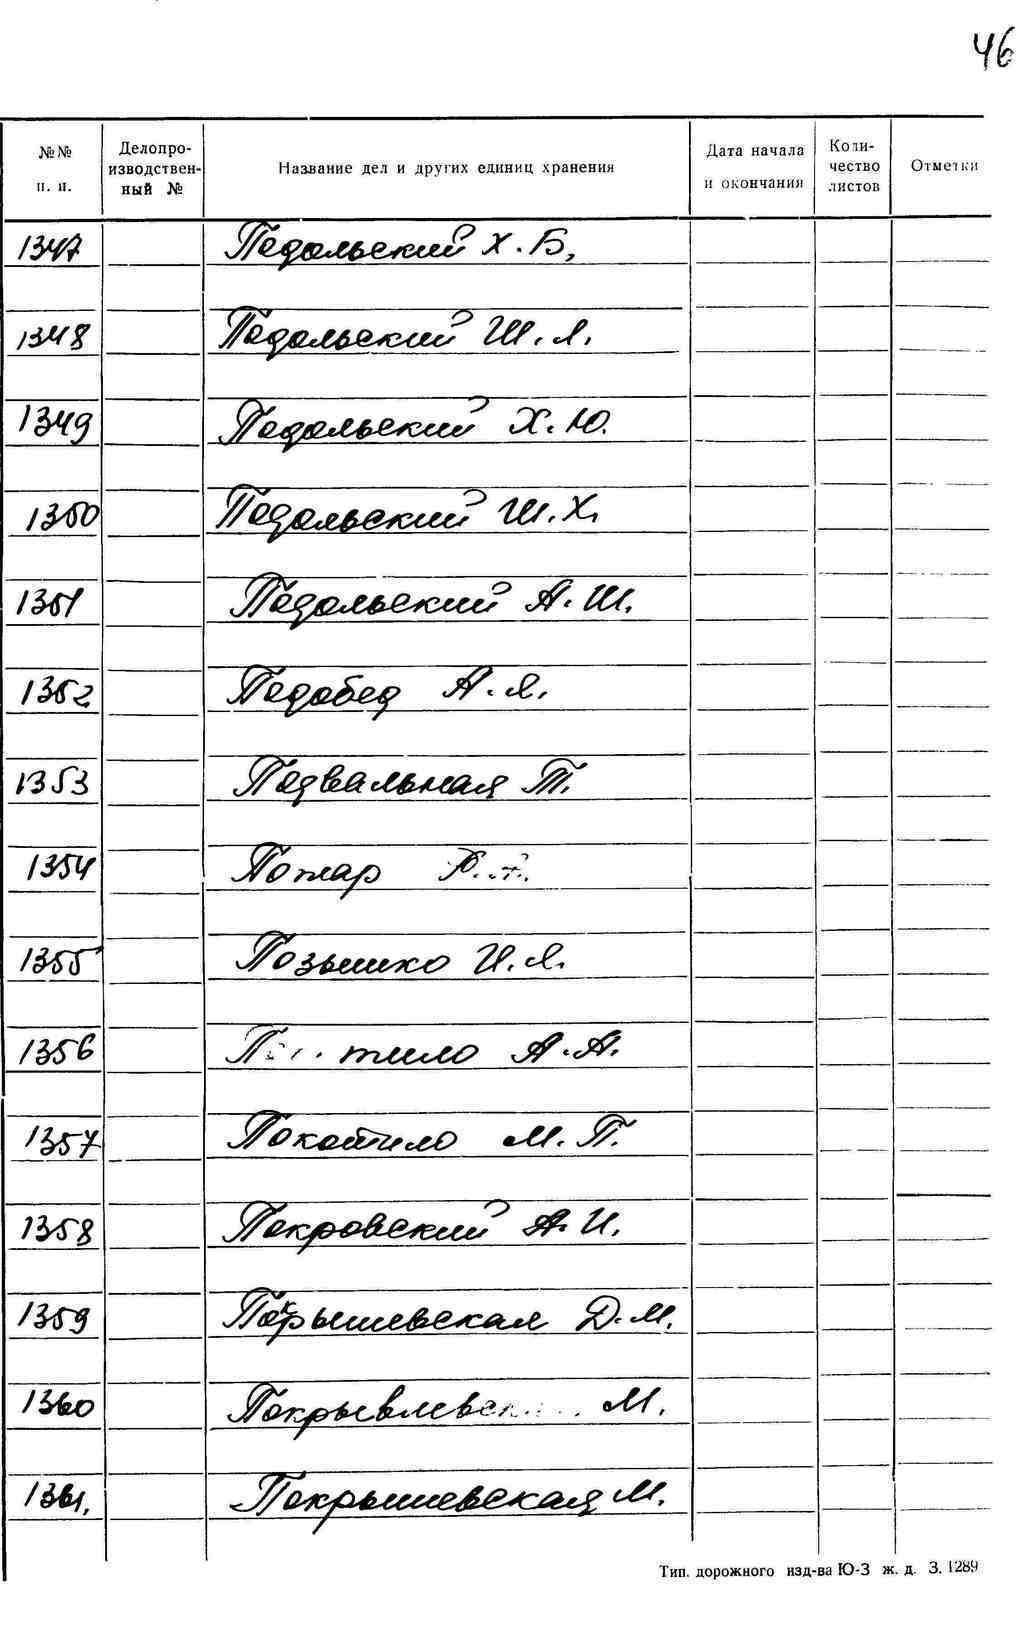 46
№№ п. п.
Делопро-
изводствен-
ный №
Название дел и других единиц хранения
Дата начала
и окончания
Коли-
чество
листов
Отметки
1347 Подольский Х. Б,
1348 Подольский Ш. Л.
1349 Подольский Х. Ю.
1350 Подольский Ш. Х.
1351 Подольский А. Ш.
1352 Подобед А. Я.
1353 Подвальная Т.
1354 Пожар
1355 Позышко И. Я.
1356 А. А.
1357 Покотило М. П.
1358 Покровский А. И.
1359 Покрышевская Д. М.
1360 М.
1361. Покрышевская М.
Тип. дорожного изд-ва Ю-З ж. д. З. 1289